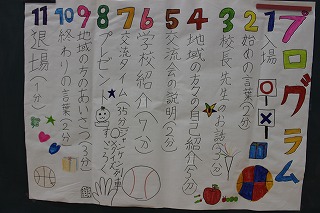 プログラム
1 入場
2 始めの言葉(2分)
3 校長先生のお話(3分)
4 地域の方々の自己紹介(5分)
5 交流会の説明(2分)
6 学校紹介(7分)
7 交流タイム(35分)
8 プレゼント
9 地域の方のあいさつ(3分)
10 終わりの言葉(2分)
11 退場(1分)